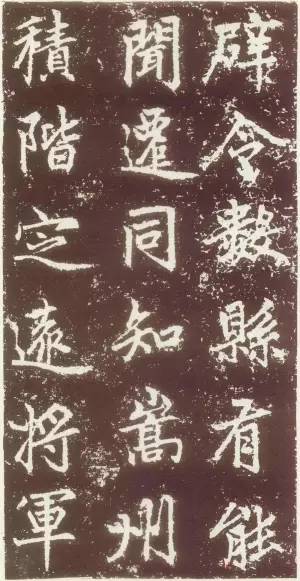 辟令數縣有能
聞遷同知嵩州
積階定遠將軍